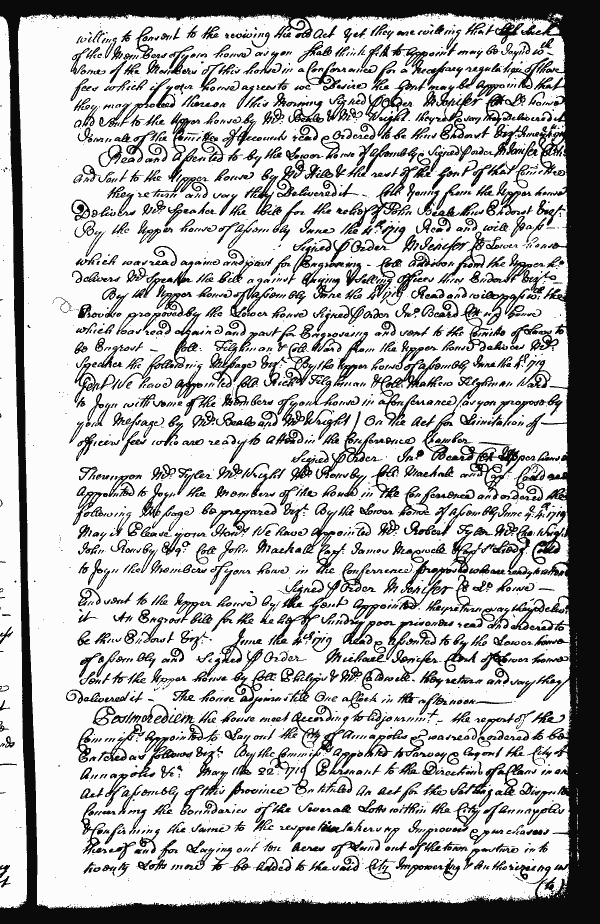 willing to Consent to the reviving the old Act yet they are willing that such
of the Members of your house as you shall think fit to Appoint may be Joyn'd wth
some of the Members of this house in a Conferrance for a necessary regulation of those
fees which if your house agrees to we Desire the Gent may be Appointed that
they may proceed thereon this Morning Signed p Order M Jenifer Clk Lo house
and sent to the Upper house by Mr Beale & Mr Wright they return & say they Delivered it
Journall of the Comittee of Accounts read & Ordered to be thus Endorst Vizt June 4th 1719
Read and Assented to by the Lower house of Assembly & Signed p order M Jenifer Clk
And Sent to the Upper house by Mr Hill & the rest of the Gent of that Comittee
they return and say they Delivered it Coll Young from the Upper house
Delivers Mr Speaker the bill for the relief of John Beale thus Endorst Vizt
By the Upper house of Assembly June the 4th 1719 Read and will pass
Signed p Order M Jenifer Clk Lower house
which was read againe and past for Engrossing Coll Addison from the Upper ho
delivers Mr Speaker the bill against buying & Selling Offices thus Endorst Vizt
By the Upper house of Assembly June the 4th 1719 Read and will pass wth the
Proviso proposed by the Lower house Signed p Order Jno Beard Clk up house
which was read againe and past for Engrossing and sent to the Comitee of Laws to
be Engrost Coll Tilghman & Coll Ward from the Upper house delivers Mr
Speaker the following Message Vizt By the Upper house of Assembly June the 4th 1719
Gent We have Appointed Coll Richd Tilghman & Coll Mathew Tilghman Ward
to Joyn with some of the Members of your house in a Conferrance as you propose by
your Message by Mr Beale and Mr Wright / On the Act for Limitation of
officers fees who are ready to Attend in the Conference Chamber
Signed p Order Jno Beard Clk Upper house
Thereupon Mr Tyler Mr Wright Mr Rousby Coll Mackall and are
Appointed to Joyn the Members of the house in the Conferrence and ordered the
following Message be prepared Vizt By the Lower house of Assembly June 4th 1719
May it Please your Honrs We have Appointed Mr Robert Tyler Mr Wright
John Rousby Esqr Coll John Mackall Capt James Maxwell
to Joyn the Members of your house in the Conferrence proposed who are ready to attend
Signed p Order M Jenifer Clk Lo house
And sent to the Upper house by the Gent Appointed they return & say they deliverd
it An Engrost bill for the relief of Sundry poor prisoners read and ordered to
be thus Endorst Vizt June the 4th 1719 Read & Assented to by the Lower house
of Assembly and Signed p Order Michael Jenifer Clerk of Lower house
Sent to the Upper house by Coll Phillips & Mr Caldwell they return and say they
delivered it The house adjourns till One a Clock in the afternoon
Postmeridiem the house meet According to Adjournmt the report of the
Commisrs Appointed to Lay out the City of Annapolis was read & ordered to be
Entered as follows Vizt By the Commisrs Appointed to Survey & Layout the City of
Annapolis &c May the 22d 1719 Pursuant to the Direction of a Clause in an
Act of Assembly of this Province Entituled An Act for the Setling all Disputes
Concerning the Boundaries of the Severall Lotts within the City of Annapolis
& Confirming the same to the respective takers up Improvers & purchasers
thereof and for Laying out ten Acres of Land out of the town pasture in to
twenty Lotts more to be Added to the said City Impowering & Authorizeing us